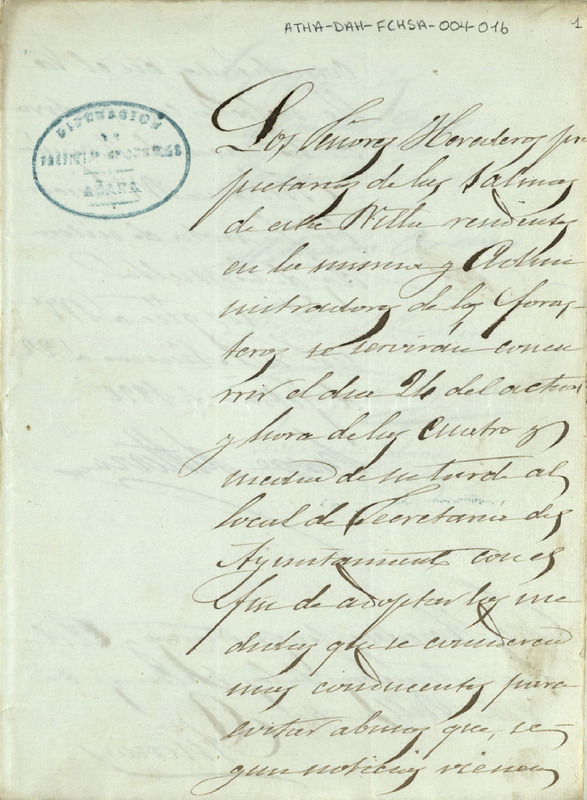 ATHA-DAH-FCHSA-004-016
1
Los Señores Herederos pro
pietarios de las Salinas
de esta Villa residentes
en la misma y Admi
nistradores de los foras
teros se servirán concu
rrir el dia 24 del actual
y hora de las cuatro y
media de su tarde al
local de Secretaria del
Ayuntamiento con el
fin de adoptar las me
didas que se consideren
mas conducentes para
evitar abusos que, se
gun noticias vienen